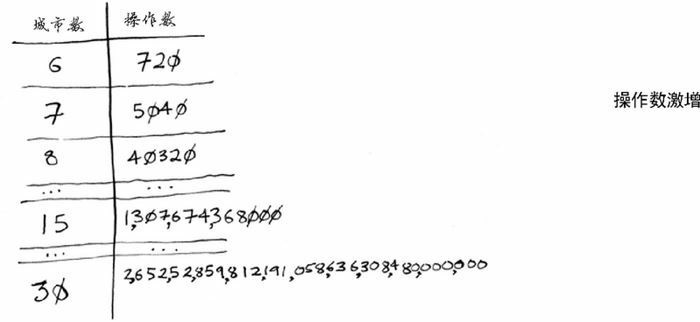 城市数 操作数
6 720
7 5040
操作数激增
8 40320
... ...
15 1,307,674,368000
... ...
30 2,652,52,859,812,191,058,636,308,480,000,000